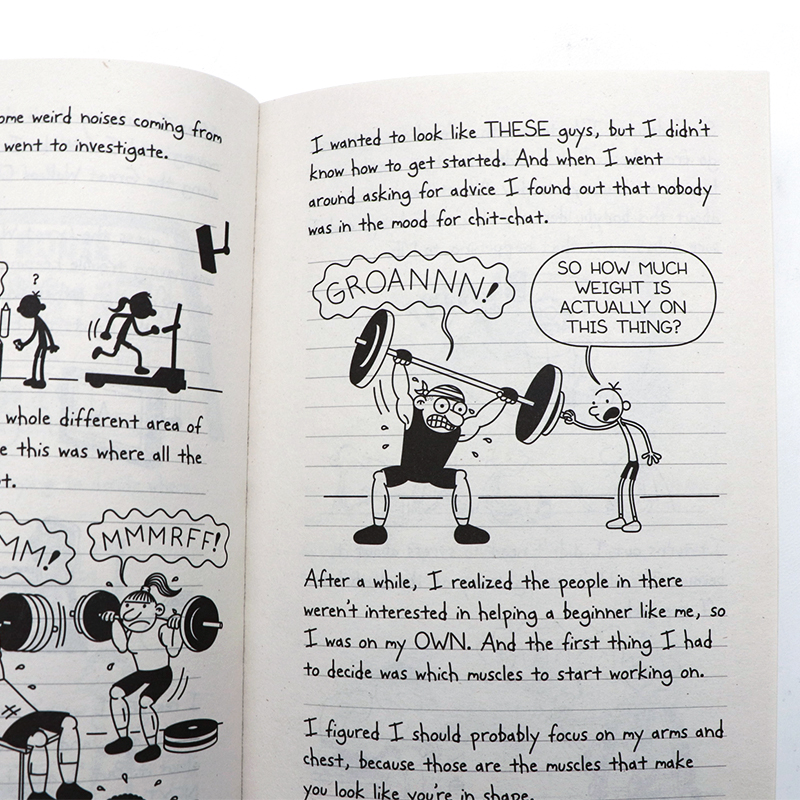 ome weird noises coming from
went to investigate.
?
whole different area of
e this was where all the
t.
MM!
MMMRFF!
I wanted to look like THESE guys, but I didn't
know how to get started. And when I went
around asking for advice I found out that nobody
was in the mood for chit-chat.
GROANNN!
SO HOW MUCH
WEIGHT IS
ACTUALLY ON
THIS THING?
After a while, I realized the people in there
weren't interested in helping a beginner like me, so
I was on my OWN. And the first thing I had
to decide was which muscles to start working on.
I figured I should probably focus on my arms and
chest, because those are the muscles that make
you look like you're in shape.